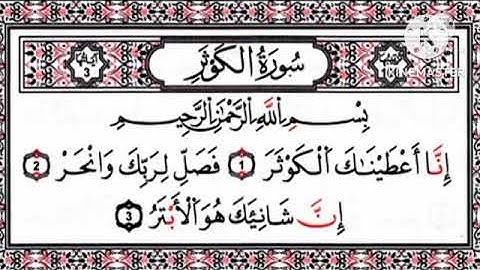 سُورَةُ الكَوثَرِ
آياتها 3
KINEMASTER
بِسْمِ اللَّهِ الرَّحْمَٰنِ الرَّحِيمِ
إِنَّا أَعْطَيْنَـٰكَ اَلْكَوْثَرَ 1 فَصَلِّ لِرَبِّكَ وَانْحَرْ 2
إِنَّ شَانِيَكَ هُوَ اَلْأَبْتَرُ 3